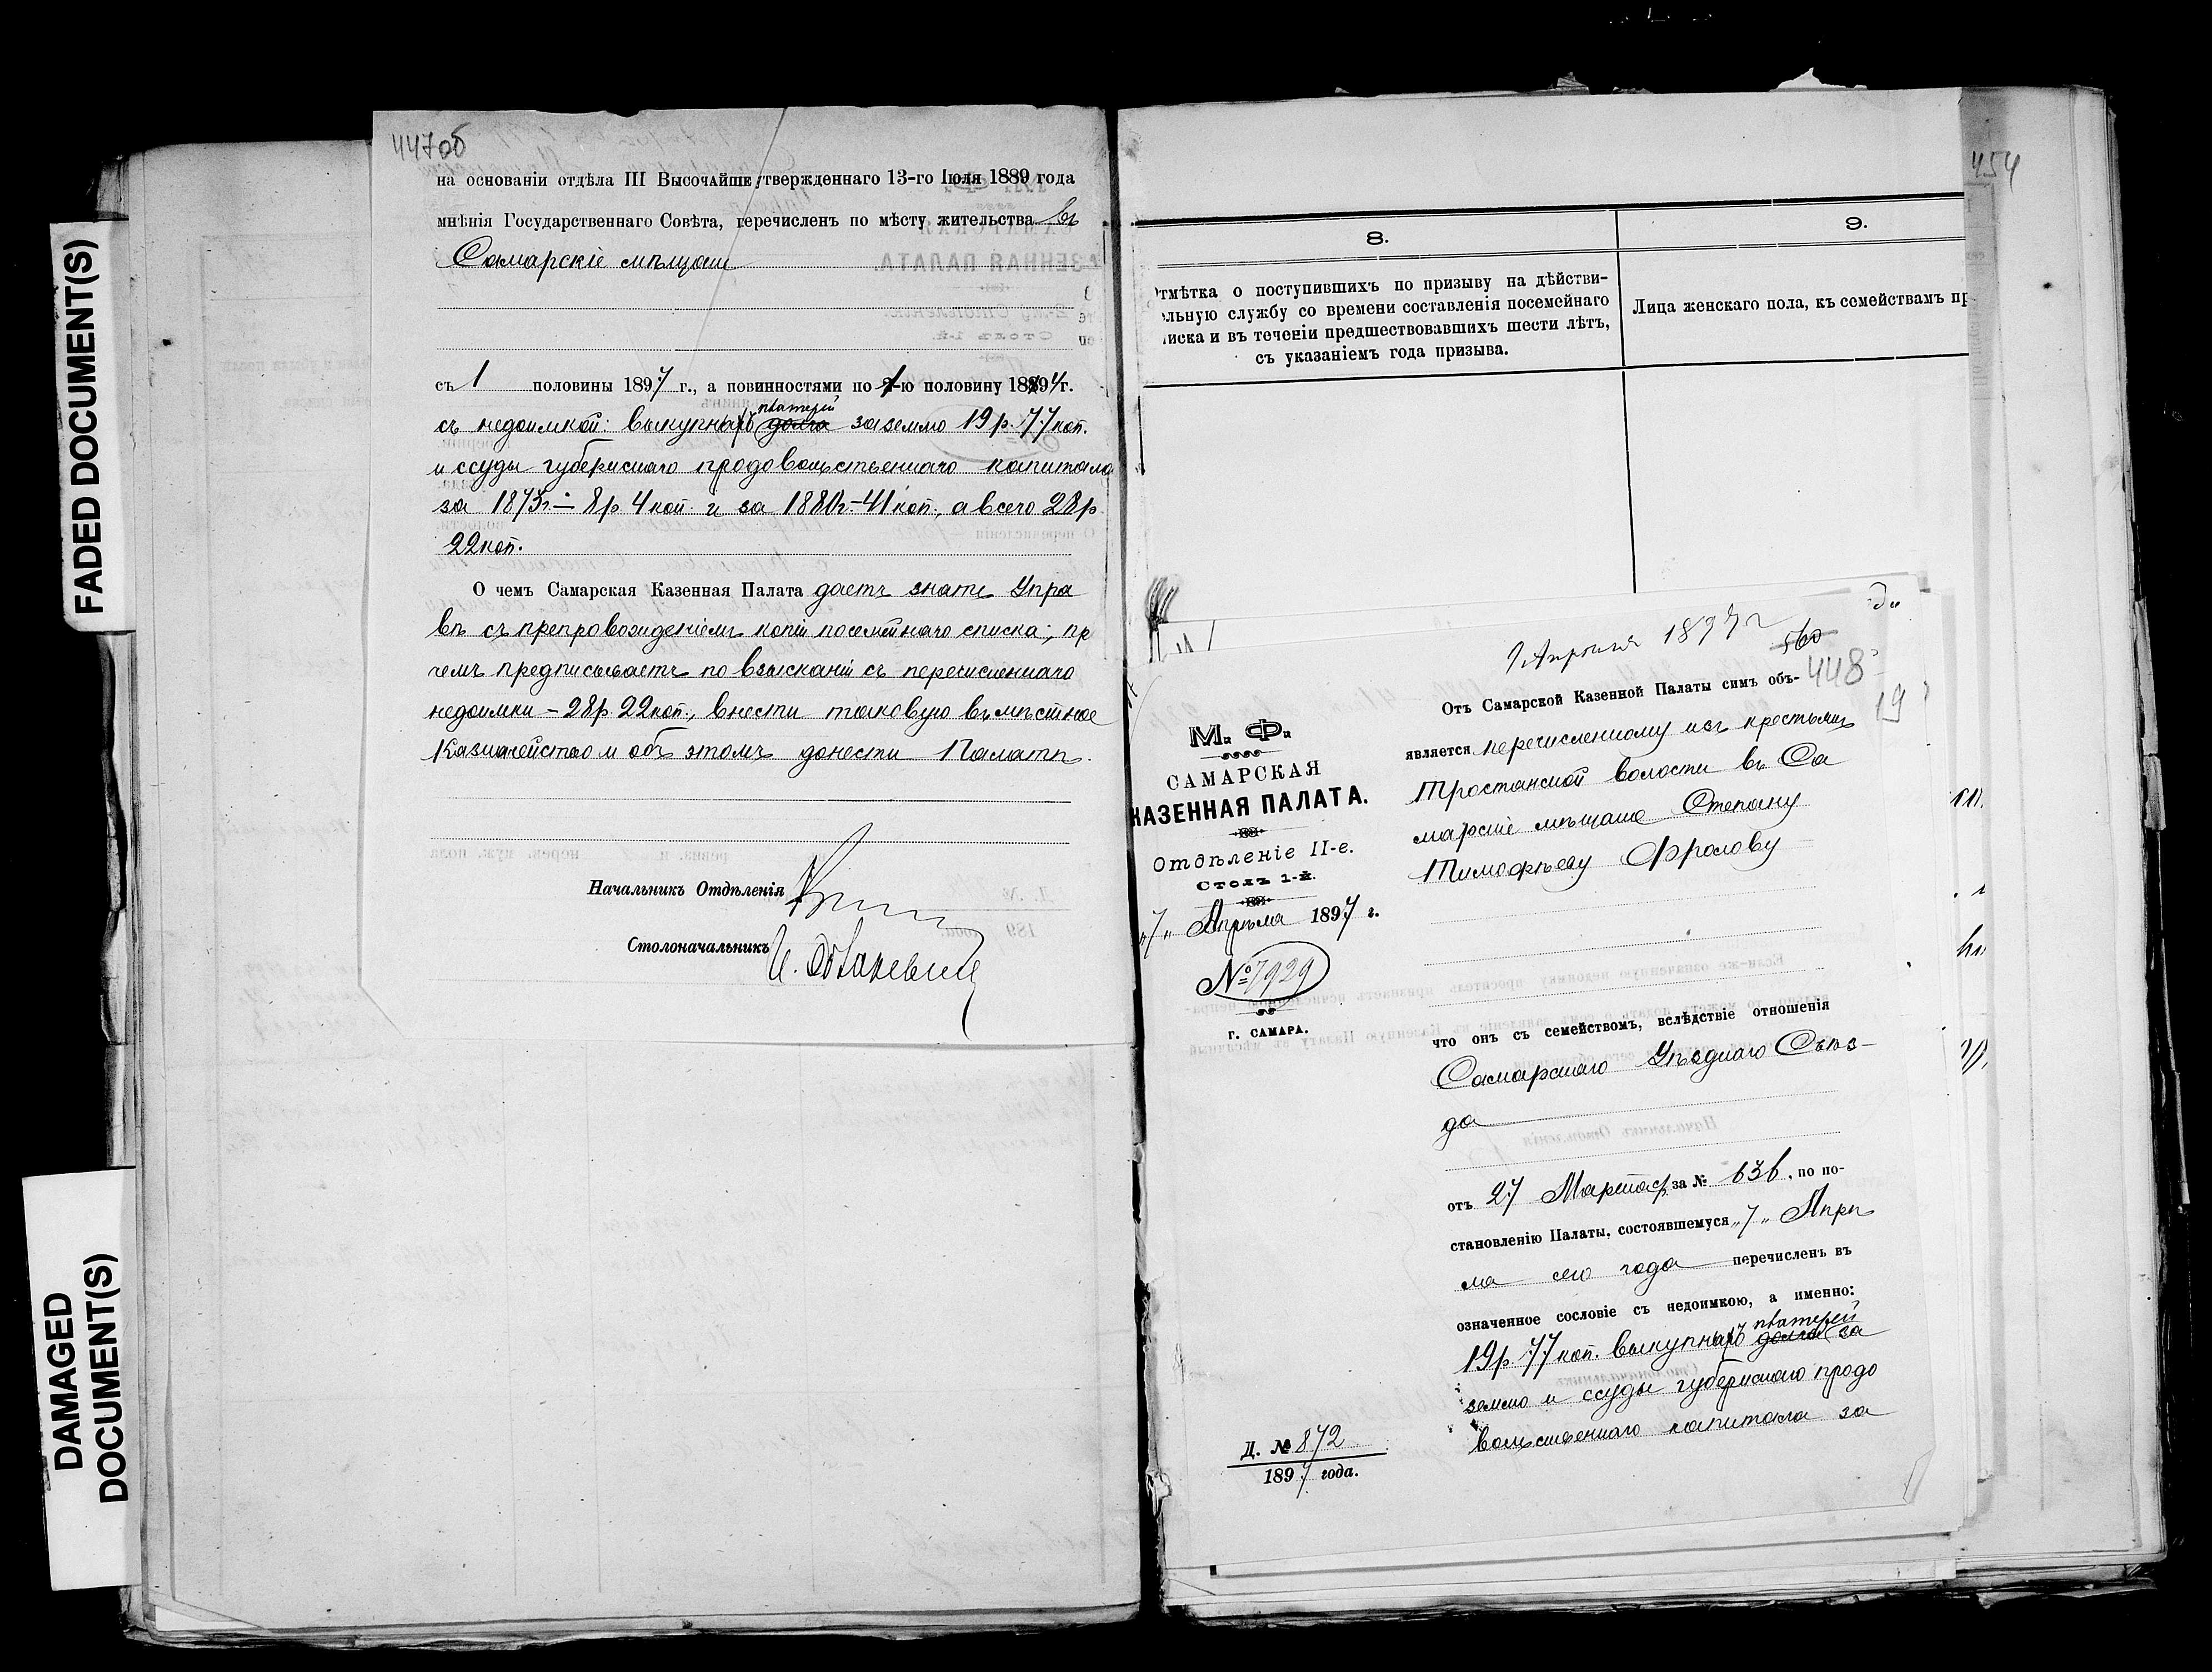 FADED DOCUMENT(S)
DAMAGED
DOCUMENT(S)
447об
на основаніи отдѣла III Высочайше утвержденнаго 13-го Іюля 1889 года
мнѣнія Государственнаго Совѣта, перечисленъ по мѣсту жительства въ
Самарскіе мѣщане
съ 1 половины 1897 г., а повинностями по 1-ю половину 1897 г.
съ недоимкой: выкупныхъ платежей за землю 19 р. 77 коп.
и ссуды губернскаго продовольственнаго капитала
за 1873г.– 8 р. 4 коп. и за 1880г.–41 коп., а всего 28 р
22 коп.
О чемъ Самарская Казенная Палата даетъ знать Упра
вѣ съ препровожденіемъ копіи посемейнаго списка; пр
чемъ предписываетъ по взысканіи съ перечисленнаго
недоимки – 28 р. 22 коп., внести таковую въ мѣстное
Казначейство и объ этомъ донести Палатѣ.
Начальникъ Отдѣленія
Столоначальникъ
454
8.
9.
Отмѣтка о поступившихъ по призыву на дѣйстви-
ельную службу со времени составленія посемейнаго
писка и въ теченіи предшествовавшихъ шести лѣтъ,
съ указаніемъ года призыва.
Лица женскаго пола, къ семействамъ пр
Апрѣля 1897 г
560
448
19
М. Ф.
САМАРСКАЯ
КАЗЕННАЯ ПАЛАТА.
Отдѣленіе II-е.
Столъ 1-й.
„7„ Апрѣля 1897 г.
№ 7929
г. САМАРА.
Д. № 872
1897 года.
Отъ Самарской Казенной Палаты симъ объ-
является перечисленному изъ крестьянъ
Тростянской волости въ Са
марскіе мѣщане Степану
Тимофѣеву Фролову
что онъ съ семействомъ, вслѣдствіе отношенія
Самарскаго Уѣзднаго Съѣз-
да
отъ 27 Марта с/г за № 636, по по-
становленію Палаты, состоявшемуся „7„ Апрѣ
ля сего года перечисленъ въ
означенное сословіе съ недоимкою, а именно:
19 р. 77 коп. выкупныхъ платежей за
землю и ссуды губернскаго продо
вольственнаго капитала за